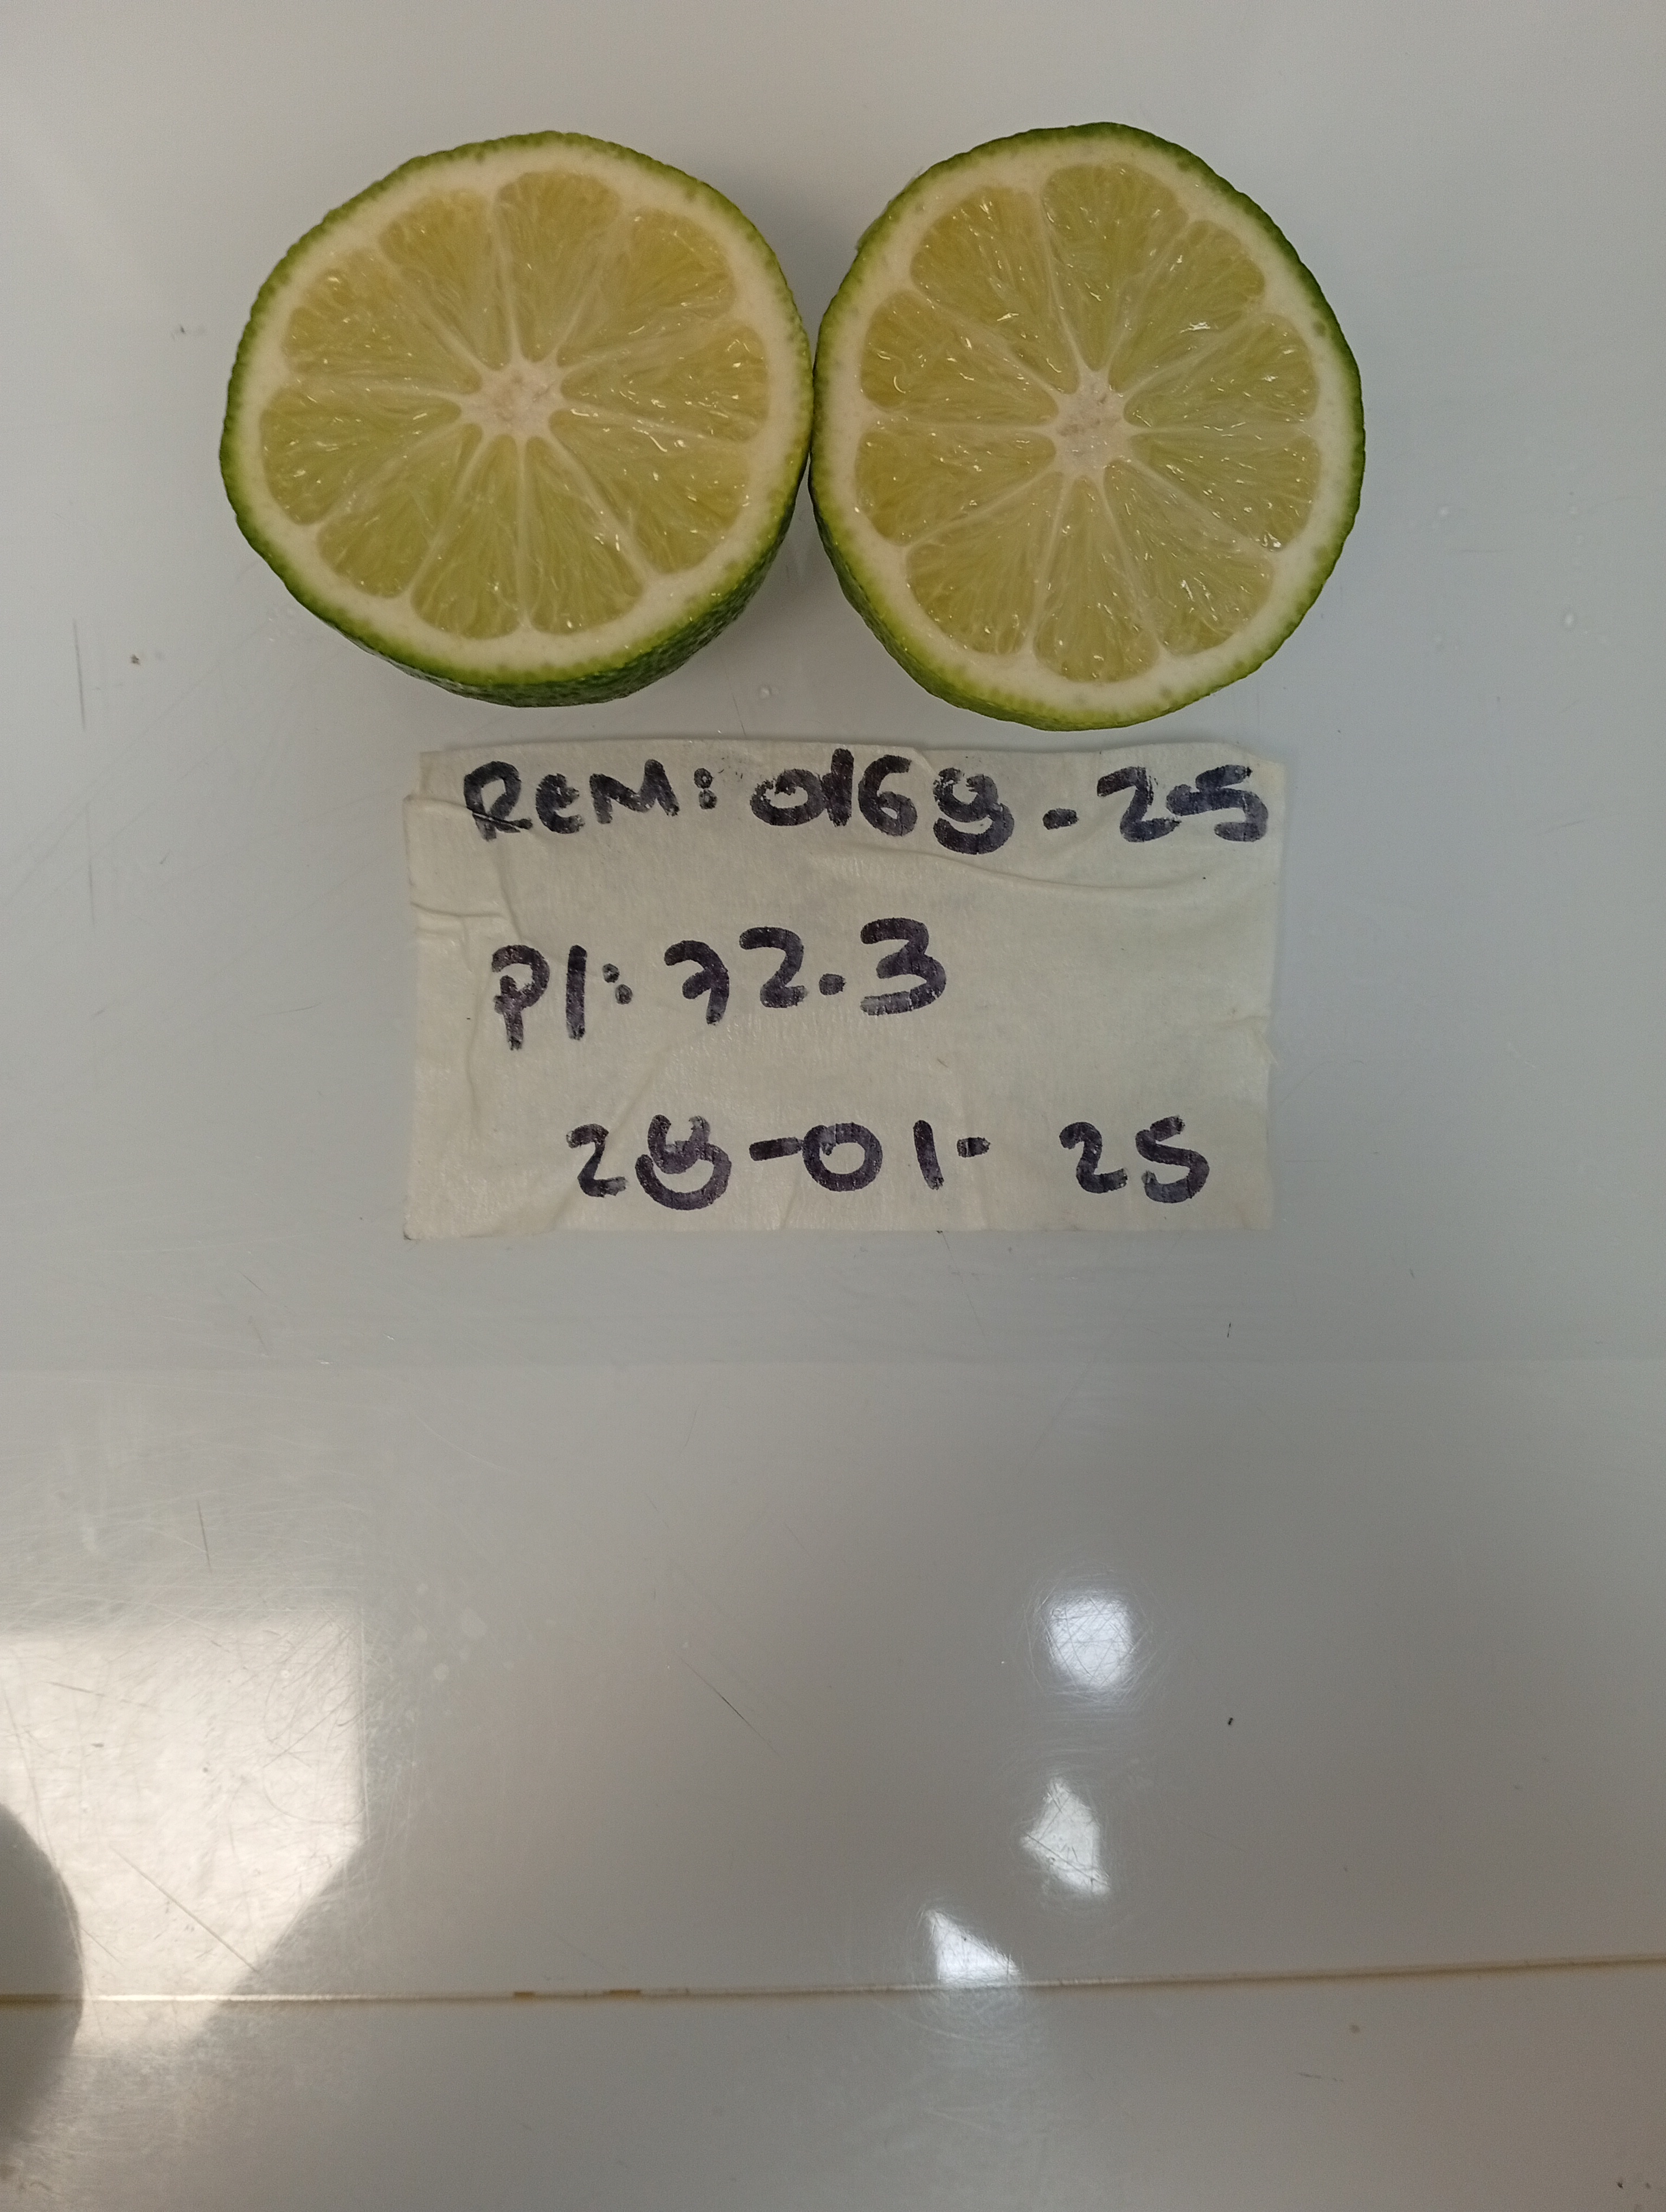 REM: 0168-25
PI: 72.3
28-01-25